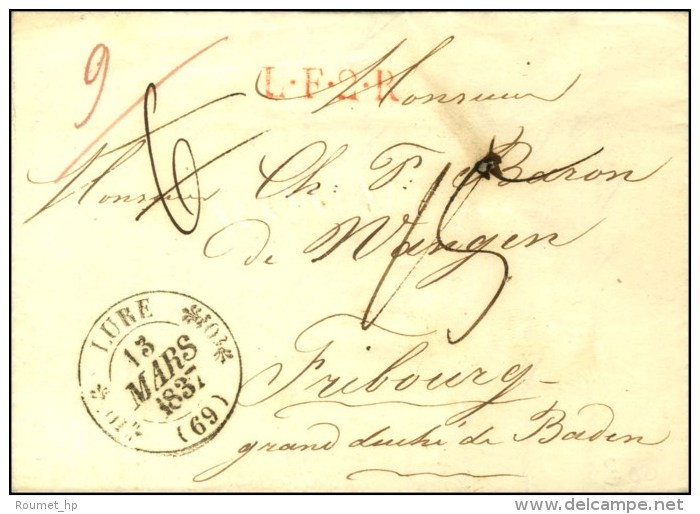 9
L·F·2·R
Monsieur
6
Monsieur Ch: Ph: Baron
de Wangen
15
LURE
13
MARS
1837
(69)
Fribourg
grand duché de Baden
Roumet_hp
www.delcampe.net